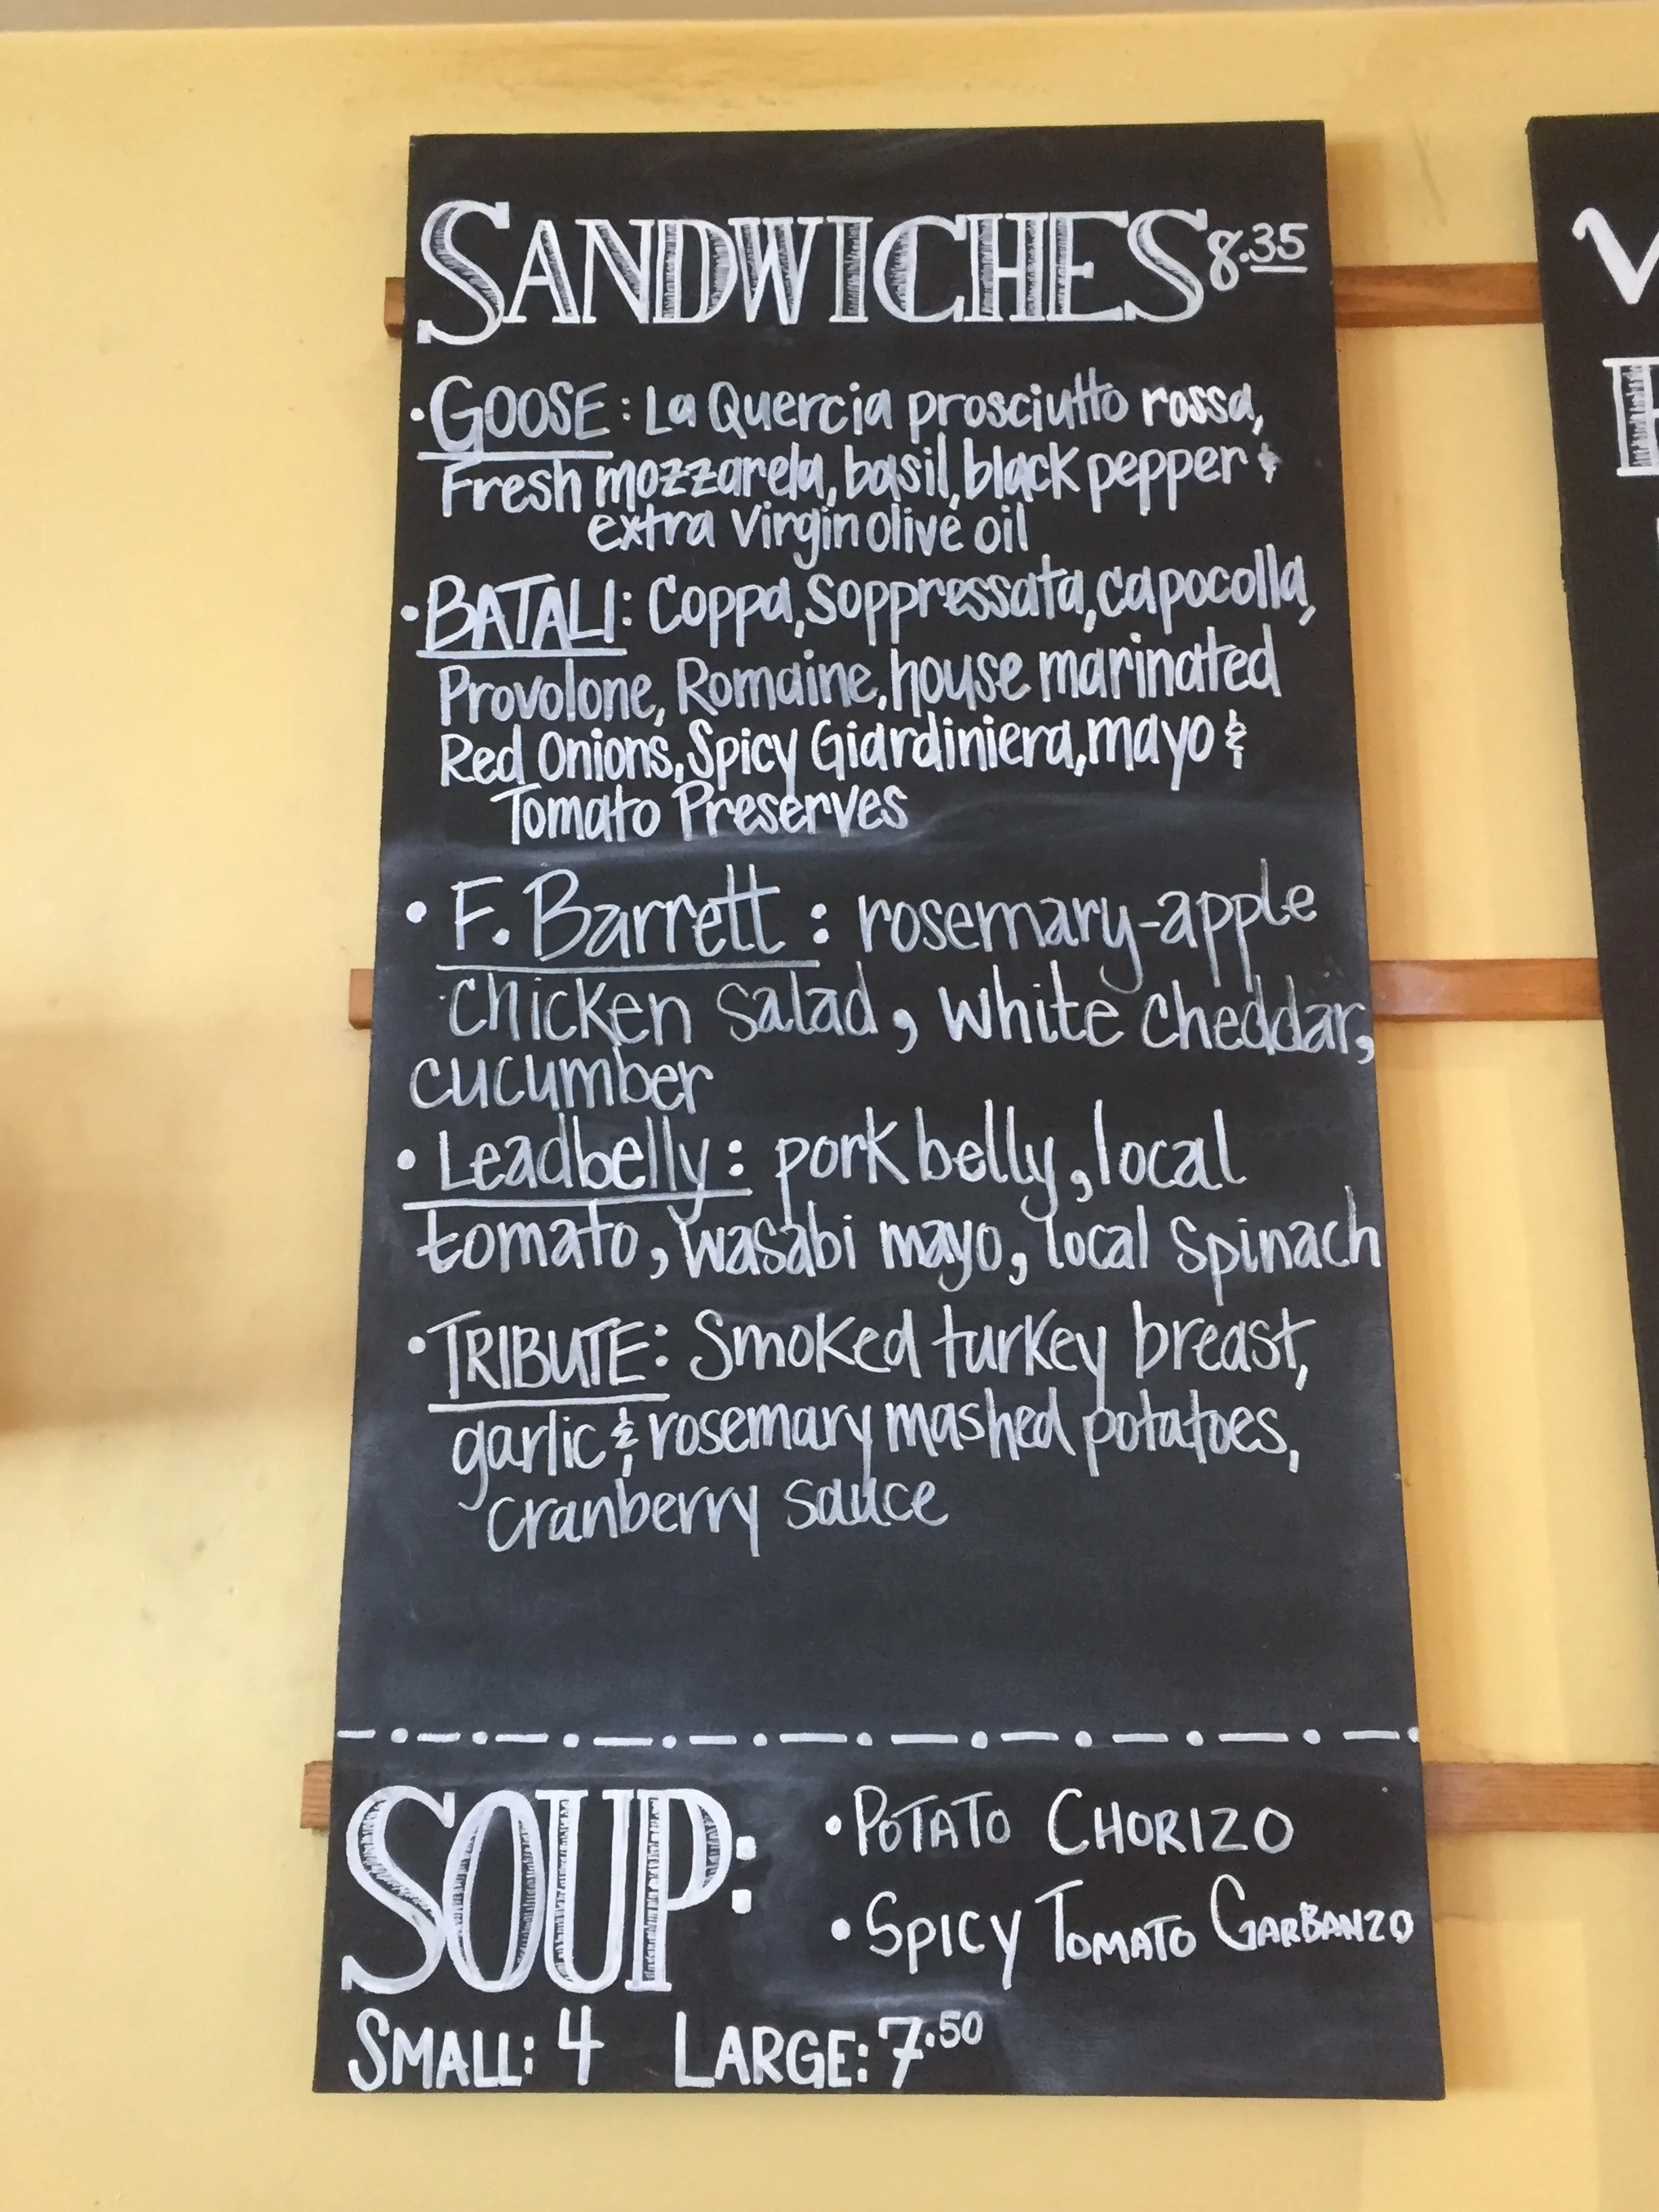 SANDWICHES 8.35
• GOOSE: La Quercia prosciutto rossa,
Fresh mozzarela, basil, black pepper &
extra virgin olive oil
• BATALI: Coppa, Soppressata, capocolla,
Provolone, Romaine, house marinated
Red Onions, Spicy Giardiniera, mayo &
Tomato Preserves
• F. Barrett: rosemary-apple
chicken salad, white cheddar,
cucumber
• Leadbelly: pork belly, local
tomato, wasabi mayo, local spinach
• TRIBUTE: Smoked turkey breast,
garlic & rosemary mashed potatoes,
cranberry sauce
SOUP:
• POTATO CHORIZO
• SPICY TOMATO GARBANZO
SMALL: 4 LARGE: 7.50